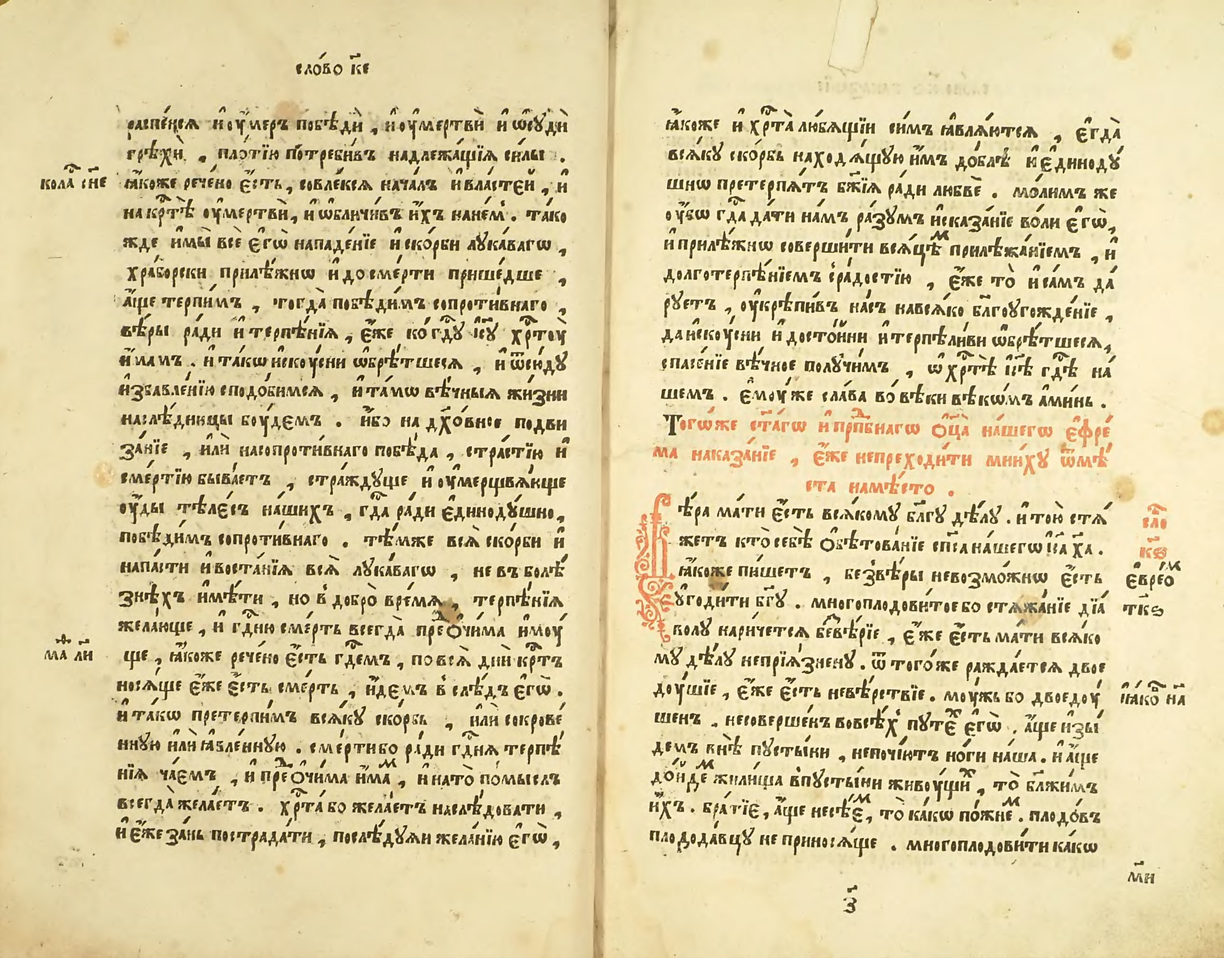 сло́во к҃е
распе́нсѧ и҆ оу҆́меръ побѣдѝ , и҆ оу҆мертвѝ и҆ ѡ҆сꙋдѝ
грѣхѝ , пло́тїю потреби́въ надлежа́щїѧ си́лы .
кола сн҃е
ꙗ҆́коже рече́но є҆́сть , совле́ксѧ нача́лъ и҆ власте́й , и҆
на крⷭ҇тѣ̀ оу҆мертвѝ , и҆ ѡ҆бличи́въ и҆́хъ на не́м . та́ко
жде и҆ мы̀ всѐ є҆гѡ̀ нападе́нїе и҆ ско́рби лꙋка́вагѡ ,
хра́борски прилѣ́жнѡ и҆ до сме́рти прише́дше ,
а҆́ще терпи́мъ , тогда̀ побѣди́мъ сопроти́внаго ,
вѣ́ры ра́ди и҆ терпѣ́нїѧ , є҆́же ко гдⷭ҇ꙋ і҆сꙋ хрⷭ҇тоу
и҆́мамъ . и҆ та́кѡ и҆скоу́сни ѡ҆брѣ́тшесѧ , и҆ ѿсю́дꙋ
и҆збавле́нїю сподо́бимсѧ , и҆ та́мѡ вѣ́чныѧ жи́зни
наслѣ́дницы боу́демъ . и҆́бо на дх҃о́вное подви
за́нїе , и҆лѝ насопроти́внаго побѣ́да , стра́стїю и҆
сме́ртїю быва́етъ , стра́ждꙋще и҆ оу҆мерщвлѧ́юще
оу҆́ды тѣле́съ на́шихъ , гдⷭ҇а ра́ди є҆динодꙋ́шно ,
побѣди́мъ сопроти́внаго . тѣ́мже всѧ̀ ско́рби и҆
напа́сти и҆ воста́нїѧ всѧ̀ лꙋка́вагѡ , не въ болѣ́
знѣхъ и҆мѣ́ти , но в̾ добро̀ вре́мѧ , терпѣ́нїѧ
жела́юще , и҆ гдⷭ҇ню сме́рть всегда̀ пре́ѻ҆чима и҆моу́
ма л҃и
ще , ꙗ҆́коже рече́но є҆́сть гдⷭ҇емъ , по всѧ̀ дни̑ крⷭ҇тъ
носѧ́ще є҆́же є҆́сть сме́рть , и҆де́мъ в̾ слѣ́дъ є҆гѡ̀ .
и҆ та́кѡ претерпи́мъ всѧ́кꙋ ско́рбь , и҆лѝ сокрове́
ннꙋю и҆лѝ ꙗ҆вле́ннꙋю . сме́рти бо ра́ди гдⷭ҇нѧ терпѣ́
нїѧ ча́емъ , и҆ преⷣѻ҆чима и҆́маⷨ , и҆ на то̀ по́мыслъ
всегда̀ жела́етъ . хрⷭ҇та̀ бо жела́етъ наслѣ́довати ,
и҆ є҆́же за́нь пострада́ти , послѣ́дꙋѧи жела́нїю є҆гѡ̀ ,
ꙗ҆́коже и҆ хрⷭ҇та̀ лю́бѧщїи си́мъ ꙗ҆влѧ́ютсѧ , є҆гда̀
всѧ́кꙋ ско́рбь находѧ́щꙋю и҆́мъ до́блѣ и҆ є҆динодꙋ́
шнѡ претерпѧ́тъ бж҃їѧ ра́ди любвѐ . мо́лимъ же
оу҆́бѡ гдⷭ҇а да́ти на́мъ ра́зꙋмъ и҆ сказа́нїе во́ли є҆гѡ̀ ,
и҆ прилѣ́жнѡ соверши́ти всѧ́цѣⷨ прилѣжа́нїемъ , и҆
долготерпѣ́нїемъ с̾ра́достїю , є҆́же то̀ и҆ са́мъ да́
рꙋетъ , оу҆крѣпи́въ на́съ на всѧ́ко бл҃гоꙋгожде́нїе ,
да и҆скоу́сни и҆ досто́йни и҆ терпѣли́ви ѡ҆брѣ́тшесѧ ,
спасе́нїе вѣ́чное полꙋ́чимъ , ѡ҆ хрⷭ҇тѣ̀ і҆с҃ѣ гдⷭ҇ѣ на́
шемъ . є҆моу́же сла́ва во вѣ́ки вѣкѡ́мъ а҆ми́нь .
Тогѡ́же ст҃а́гѡ и҆ прпⷣбнагѡ ѻ҆ц҃а̀ на́шегѡ є҆фре́
ма наказа́нїе , є҆́же непреходи́ти мни́хꙋ ѿ мѣ́
ста на мѣ́сто .
сло к҃ѕ
Вѣ́ра ма́ти є҆́сть всѧ́комꙋ бл҃гꙋ дѣ́лꙋ . и҆ то́ю стѧ́
жетъ кто̀ себѣ̀ ѻ҆бѣтова́нїе сп҃са на́шегѡ і҆с҃а х҃а .
євреѡⷨ
ꙗ҆́коже пи́шетъ , без̾ вѣ́ры невозмо́жнѡ є҆́сть
оу҆годи́ти бг҃ꙋ . многоплодови́тое бо стѧжа́нїе дїа́
волꙋ нарича́етсѧ безвѣ́рїе , є҆́же є҆́сть ма́ти всѧ́ко
мꙋ дѣ́лꙋ непрїѧ́зненꙋ . ѿ того́же ражда́етсѧ двое
доу́шїе , є҆́же є҆́сть невѣ́рствїе . моу́жъ бо двоедоу́
шенъ , несоверше́нъ во всѣ́хъ пꙋте́х є҆гѡ̀ . а҆́ще и҆зы́
демъ внѣ̀ пꙋсты́ни , непочі́ютъ но́ги на́ша . и҆ а҆́ще
до́йдеⷨ жили́ща в̾пꙋсты́ни живоу́щиⷯ , то̀ бл҃жи́мъ
и҆́хъ . бра́тїе , а҆́ще несѣ́еⷨ , то̀ ка́кѡ по́жнеⷨ . плодо́въ
плодода́вцꙋ не принося́ще . многоплодови́ти ка́кѡ
з҃